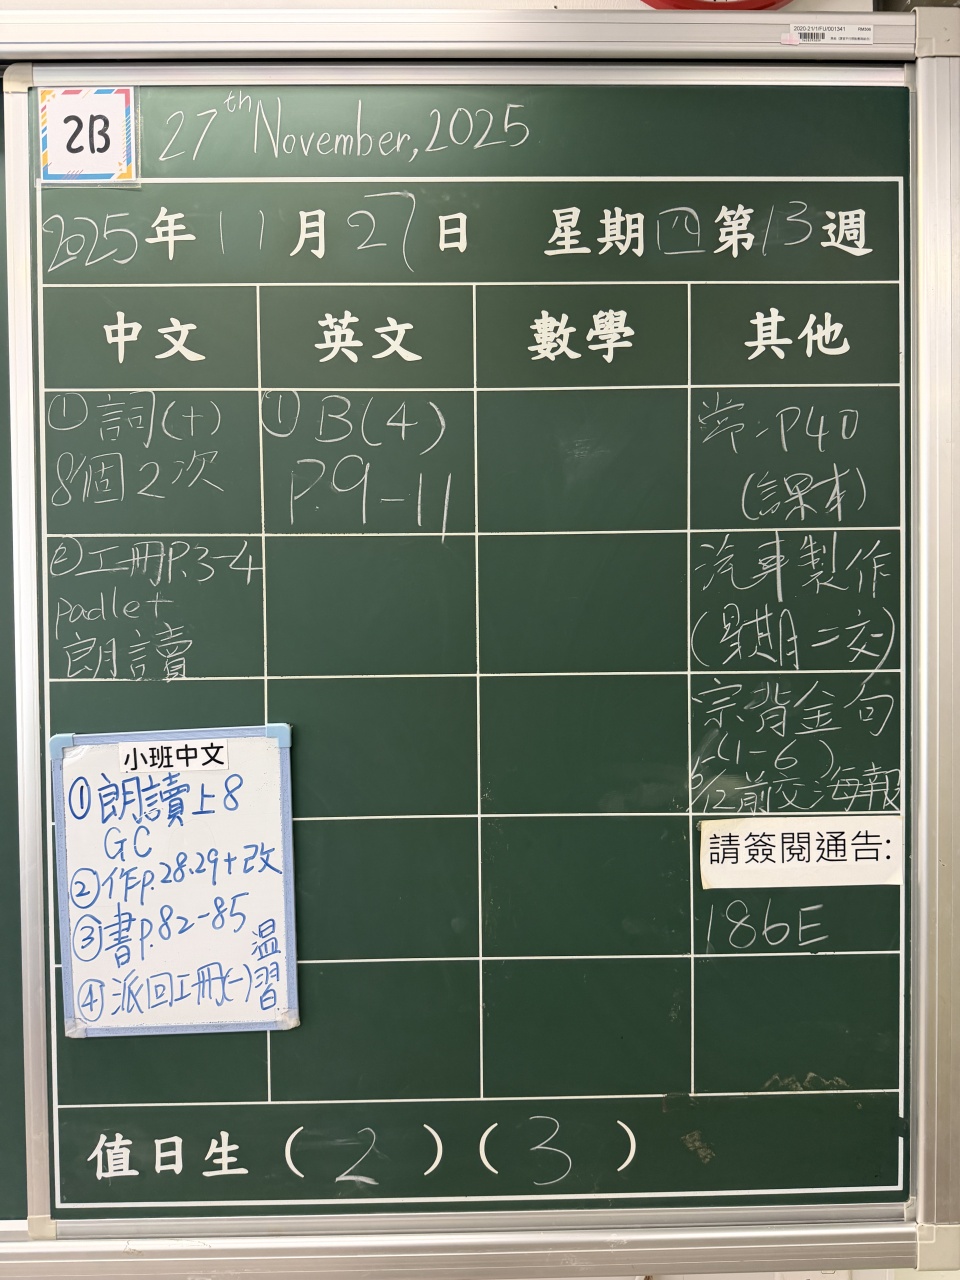 2020-21/1/FU/001341
2B
27th November, 2025
2025年11月27日 星期四第13週
中文 英文 數學 其他
①詞(十)
8個2次
①B(4)
P.9-11
常:P40
(課本)
②工冊P.3-4
padlet
朗讀
汽車製作
(星期二交)
宗背金句
(1-6)
前交海報
小班中文
①朗讀上8
GC
②作p.28.29+改
③書p.82-85
④派回工冊(一)温習
請簽閱通告:
186E
值日生(2)(3)